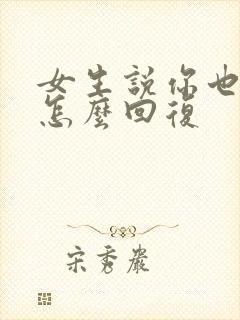 女生說你也
怎麼回復
宋秀巖